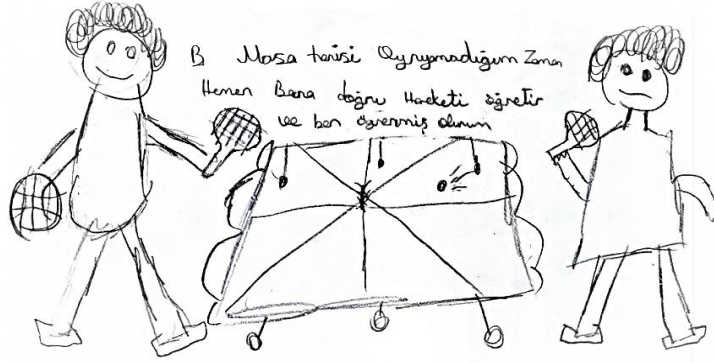 B Masa tenisi Oynyamadığım Zaman
Hemen Bana doğru Hareketi öğretir
ve ben öğrenmiş olurum